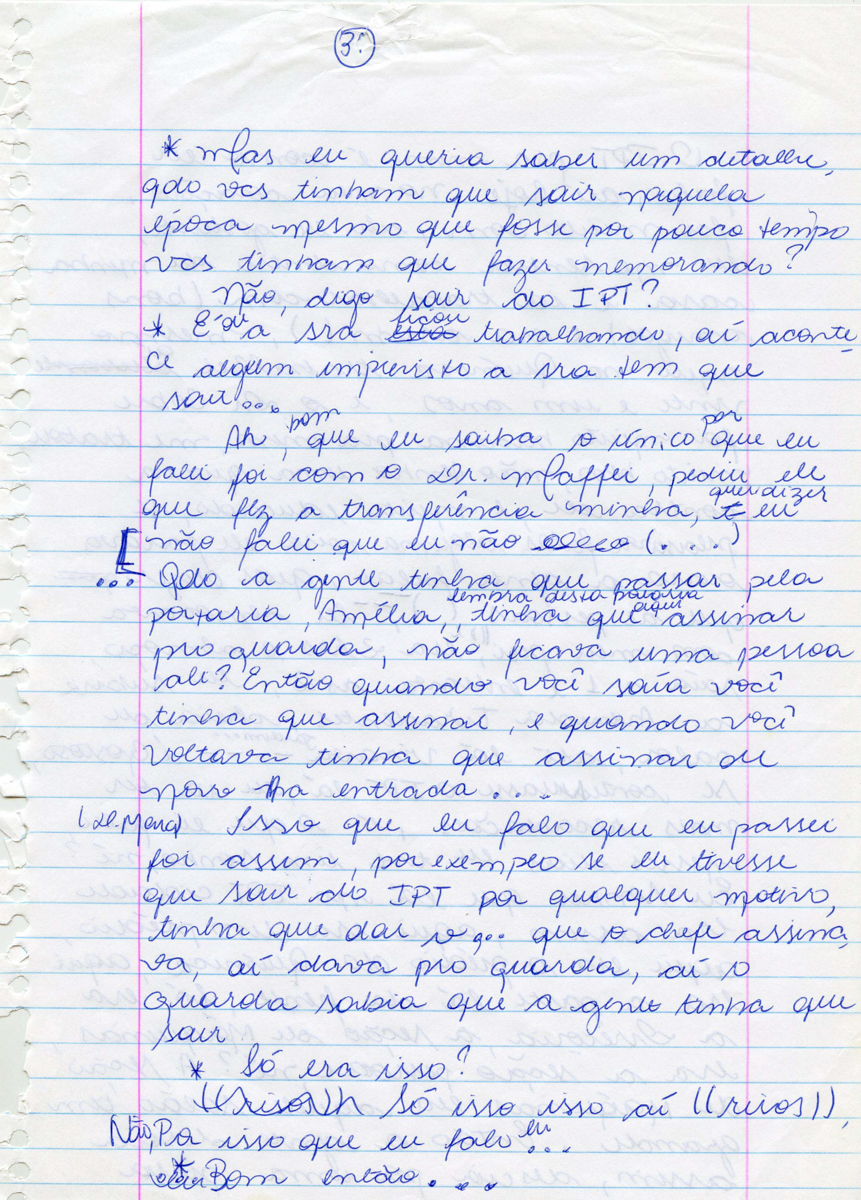 3.
* Mas eu queria saber um detalhe,
qdo vcs tinham que sair naquela
época mesmo que fosse por pouco tempo
vcs tinham que fazer memorando?
Não, digo sair do IPT?
* É a sra ficou trabalhando, aí aconte
ce algum imprevisto a sra tem que
sair...
Ah, bom que eu saiba o único por que eu
falei foi com o Dr. Maffei, pediu ele
que fez a transferência minha, quer dizer eu
não falei que eu não (...)
... Qdo a gente tinha que passar pela
portaria, Amélia, lembra desta portaria aqui, tinha que assinar
pro guarda, não ficava uma pessoa
ali? Então quando você saía você
tinha que assinar, e quando você
voltava tinha que assinar de
novo na entrada...
Isso que eu falo que eu passei
foi assim, por exemplo se eu tivesse
que sair do IPT por qualquer motivo,
tinha que dar o ... que o chefe assina
va, aí dava pro guarda, aí o
guarda sabia que a gente tinha que
sair
* Só era isso?
((risos)) Só isso isso aí ((risos)),
Não, Por isso que eu falo eu...
* Bom então....